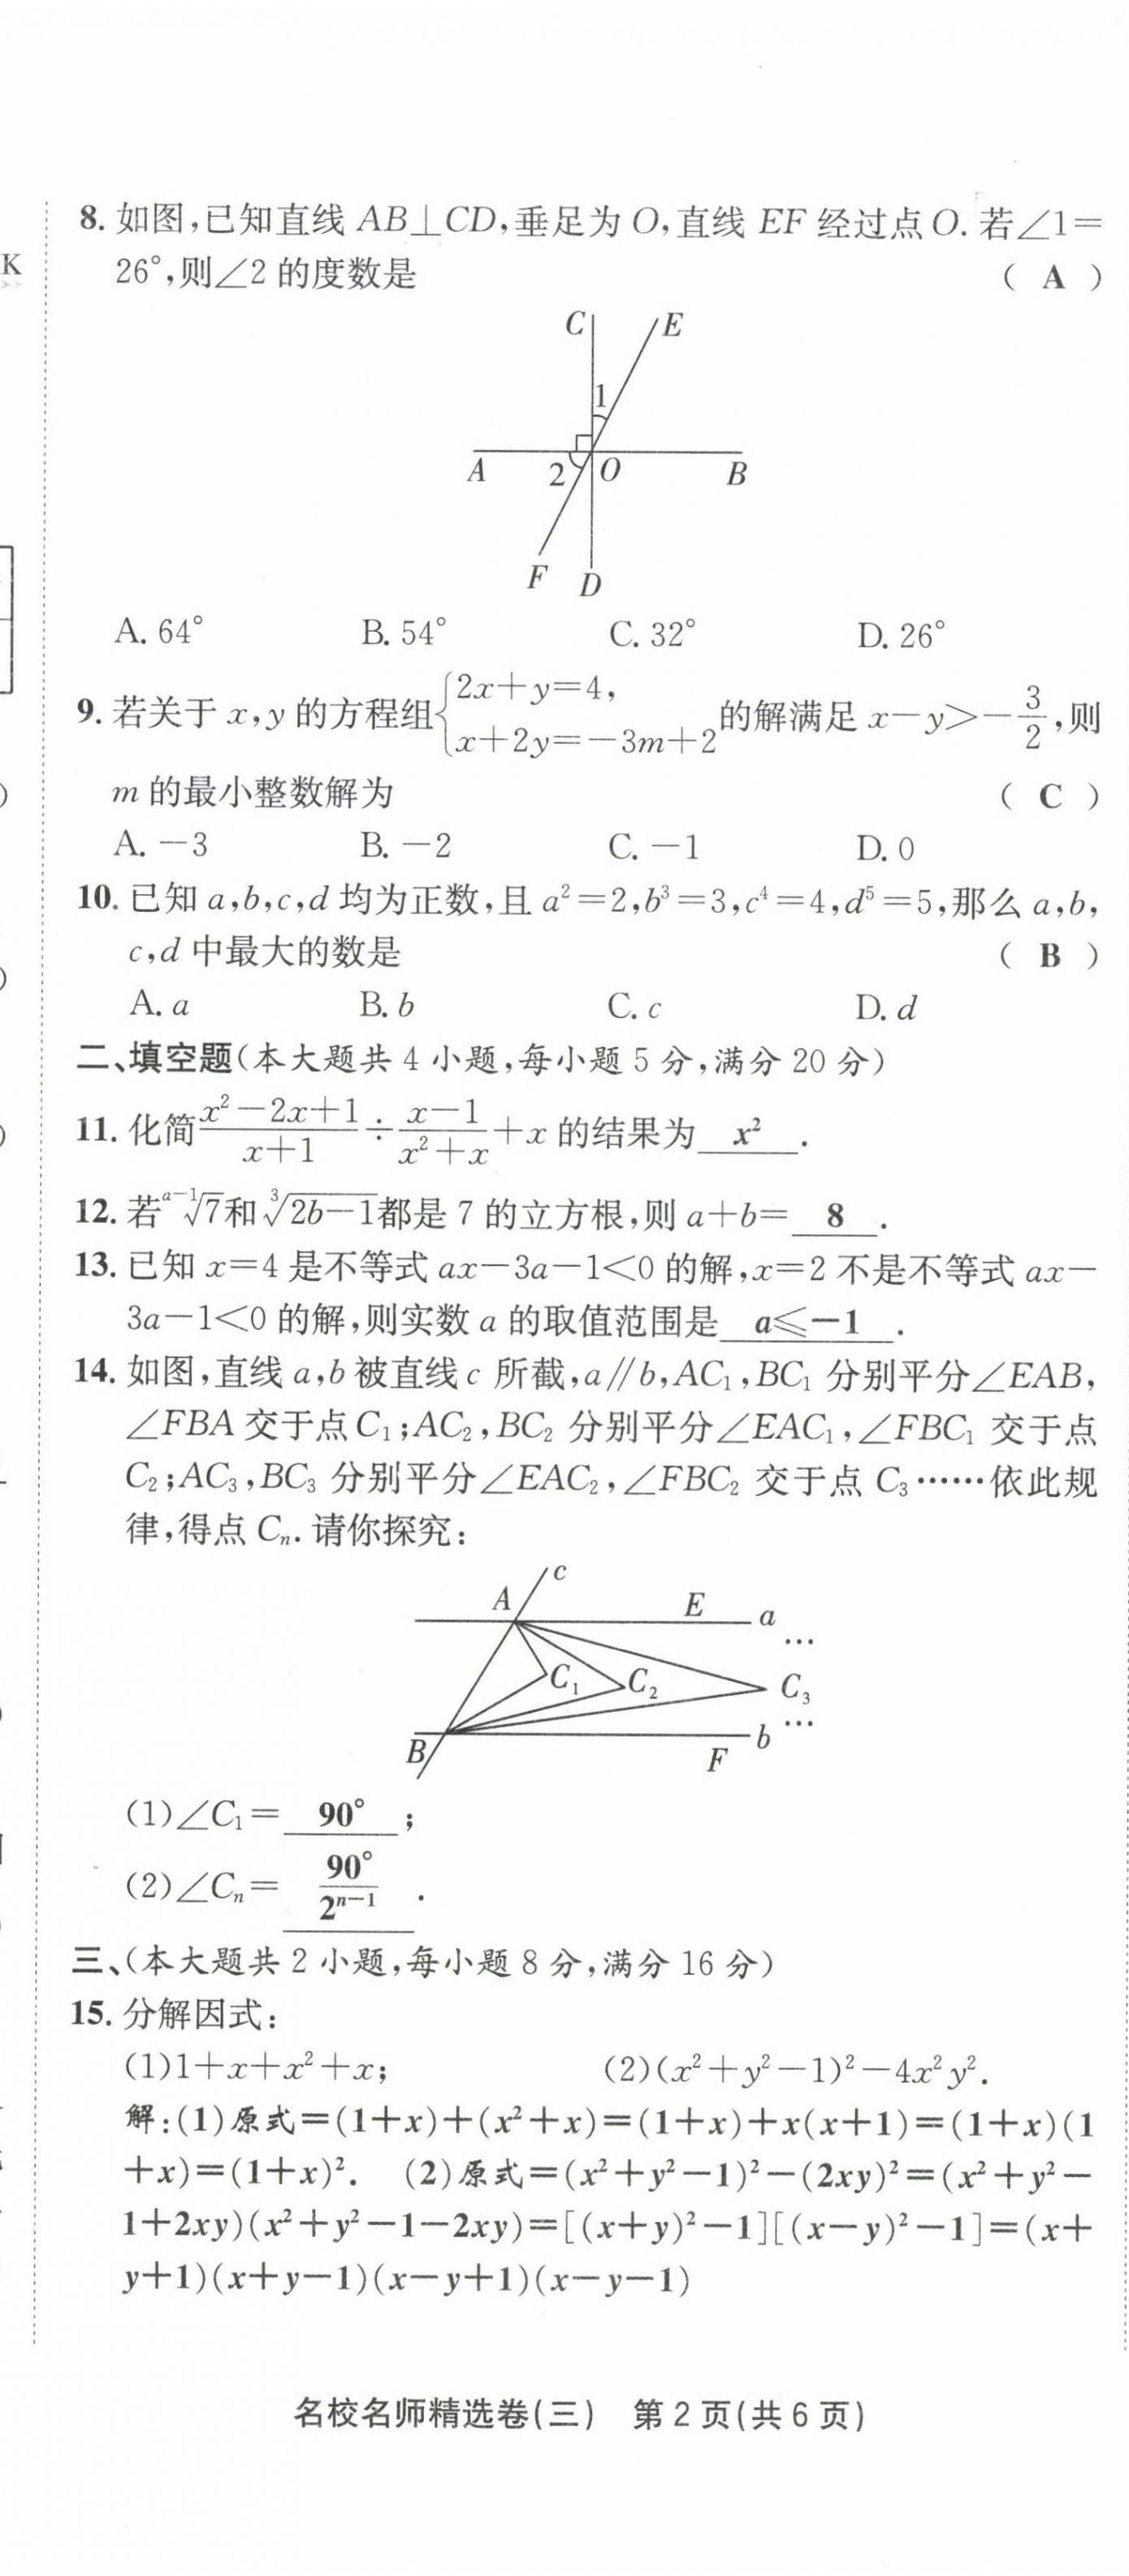 K
8. 如图,已知直线 AB⊥CD,垂足为 O,直线 EF 经过点 O. 若∠1=
26°,则∠2 的度数是 ( A )
C E
1
A 2 O B
F D
A. 64° B. 54° C. 32° D. 26°
9. 若关于 x,y 的方程组{2x+y=4, x+2y=-3m+2 的解满足 x-y>-3/2,则
m 的最小整数解为 ( C )
A. -3 B. -2 C. -1 D. 0
10. 已知 a,b,c,d 均为正数,且 a²=2,b³=3,c⁴=4,d⁵=5,那么 a,b,
c,d 中最大的数是 ( B )
A. a B. b C. c D. d
二、填空题(本大题共 4 小题,每小题 5 分,满分 20 分)
11. 化简 (x²-2x+1)/(x+1) ÷ (x-1)/(x²+x) +x 的结果为 x² .
12. 若 ᵃ⁻¹√7 和 ³√(2b-1) 都是 7 的立方根,则 a+b= 8 .
13. 已知 x=4 是不等式 ax-3a-1<0 的解,x=2 不是不等式 ax-
3a-1<0 的解,则实数 a 的取值范围是 a≤-1 .
14. 如图,直线 a,b 被直线 c 所截,a∥b,AC₁,BC₁ 分别平分∠EAB,
∠FBA 交于点 C₁;AC₂,BC₂ 分别平分∠EAC₁,∠FBC₁ 交于点
C₂;AC₃,BC₃ 分别平分∠EAC₂,∠FBC₂ 交于点 C₃……依此规
律,得点 Cₙ. 请你探究:
c
A E a
…
C₁ C₂ C₃
…
B F b
(1)∠C₁= 90° ;
(2)∠Cₙ= 90°/2ⁿ⁻¹ .
三、(本大题共 2 小题,每小题 8 分,满分 16 分)
15. 分解因式:
(1)1+x+x²+x; (2)(x²+y²-1)²-4x²y².
解:(1)原式=(1+x)+(x²+x)=(1+x)+x(x+1)=(1+x)(1
+x)=(1+x)². (2)原式=(x²+y²-1)²-(2xy)²=(x²+y²-
1+2xy)(x²+y²-1-2xy)=[(x+y)²-1][(x-y)²-1]=(x+
y+1)(x+y-1)(x-y+1)(x-y-1)
名校名师精选卷(三) 第 2 页(共 6 页)